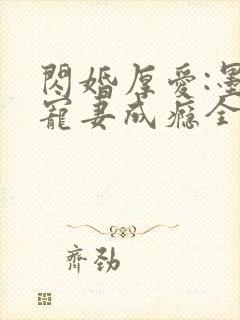 閃婚厚愛:墨
寵妻成癮全
齊勁